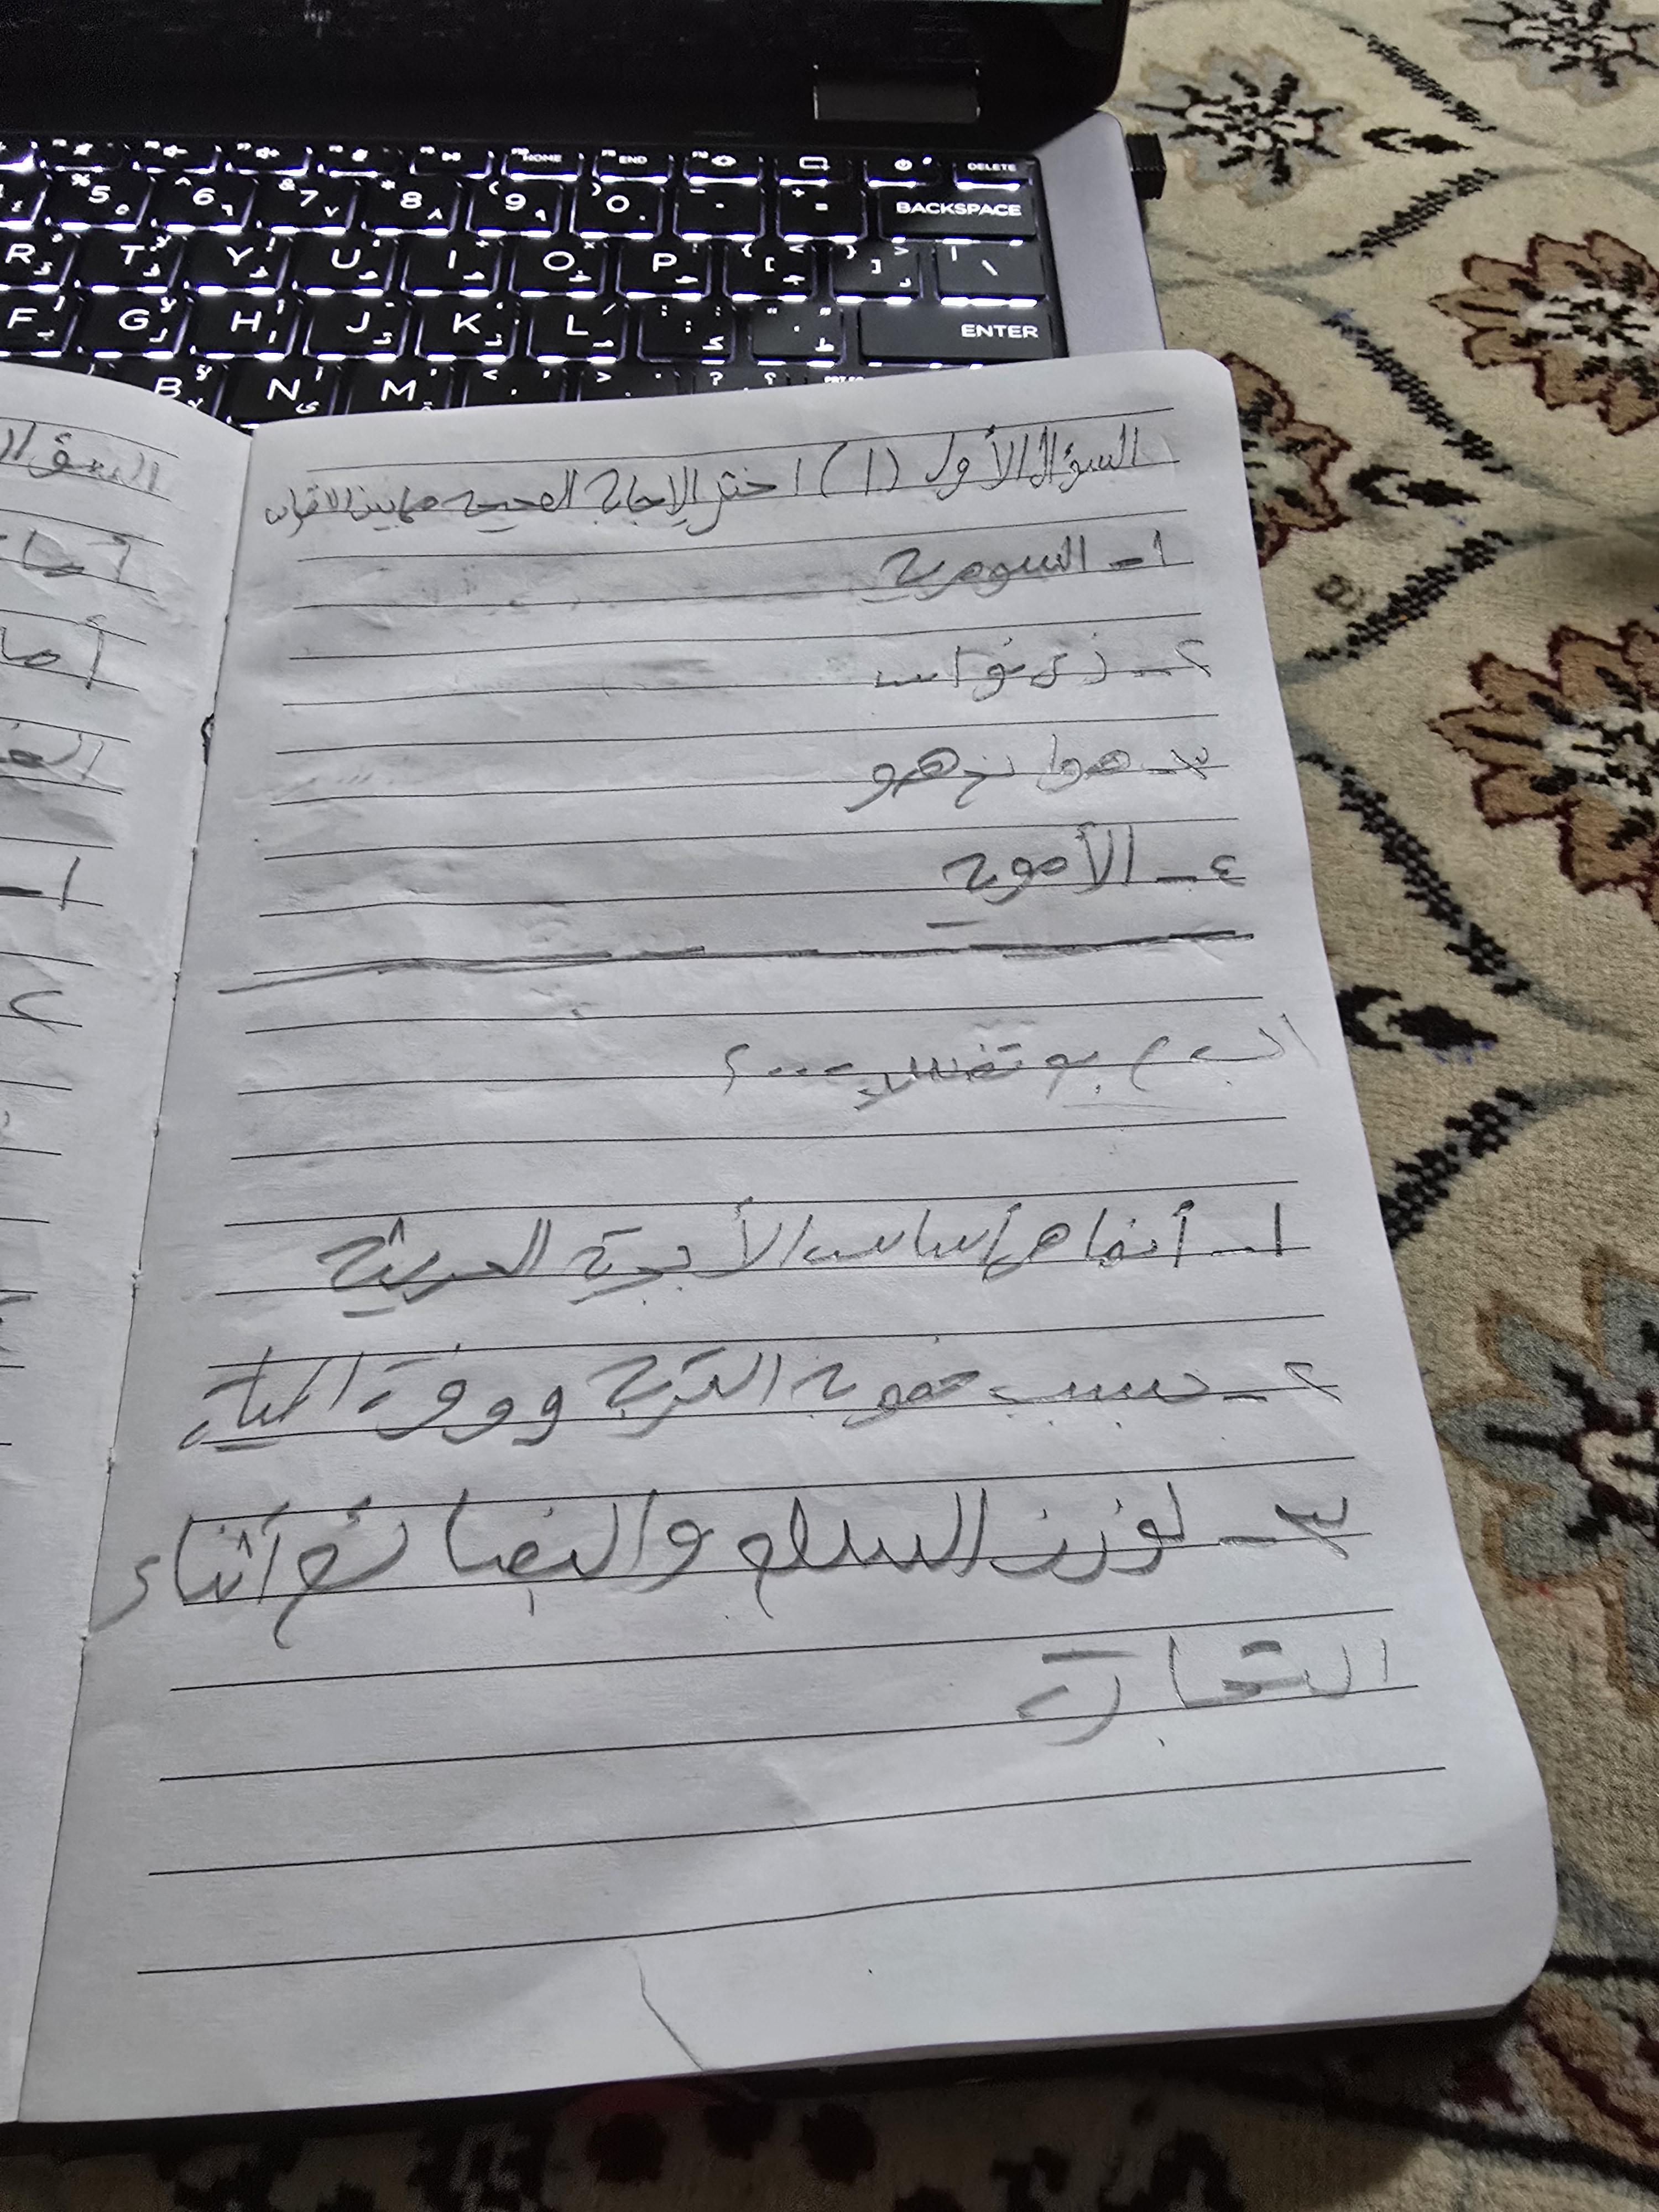 HOME END DELETE
% 5 ٥ ^ 6 ٦ & 7 ٧ * 8 ٨ ( 9 ٩ ) 0 - + = BACKSPACE
R T Y U I O P { [ } ] | \
F G H J K L : ; " ' ENTER
B N M < , > . ? ؟
السؤال الأول (ا) اختر الإجابة الصحيحة مما بين الاقواس
١- السومرية
٢- ذي نواس
٣- هوانجهو
٤- الأموية
ب) بم تفسر ...؟
١- أنها أساس الأبجدية الحديثة
٢- بسبب خصوبة التربة ووفرة المياه
٣- لوزن السلع والبضائع أثناء
التجارة
السؤال
١-
٢